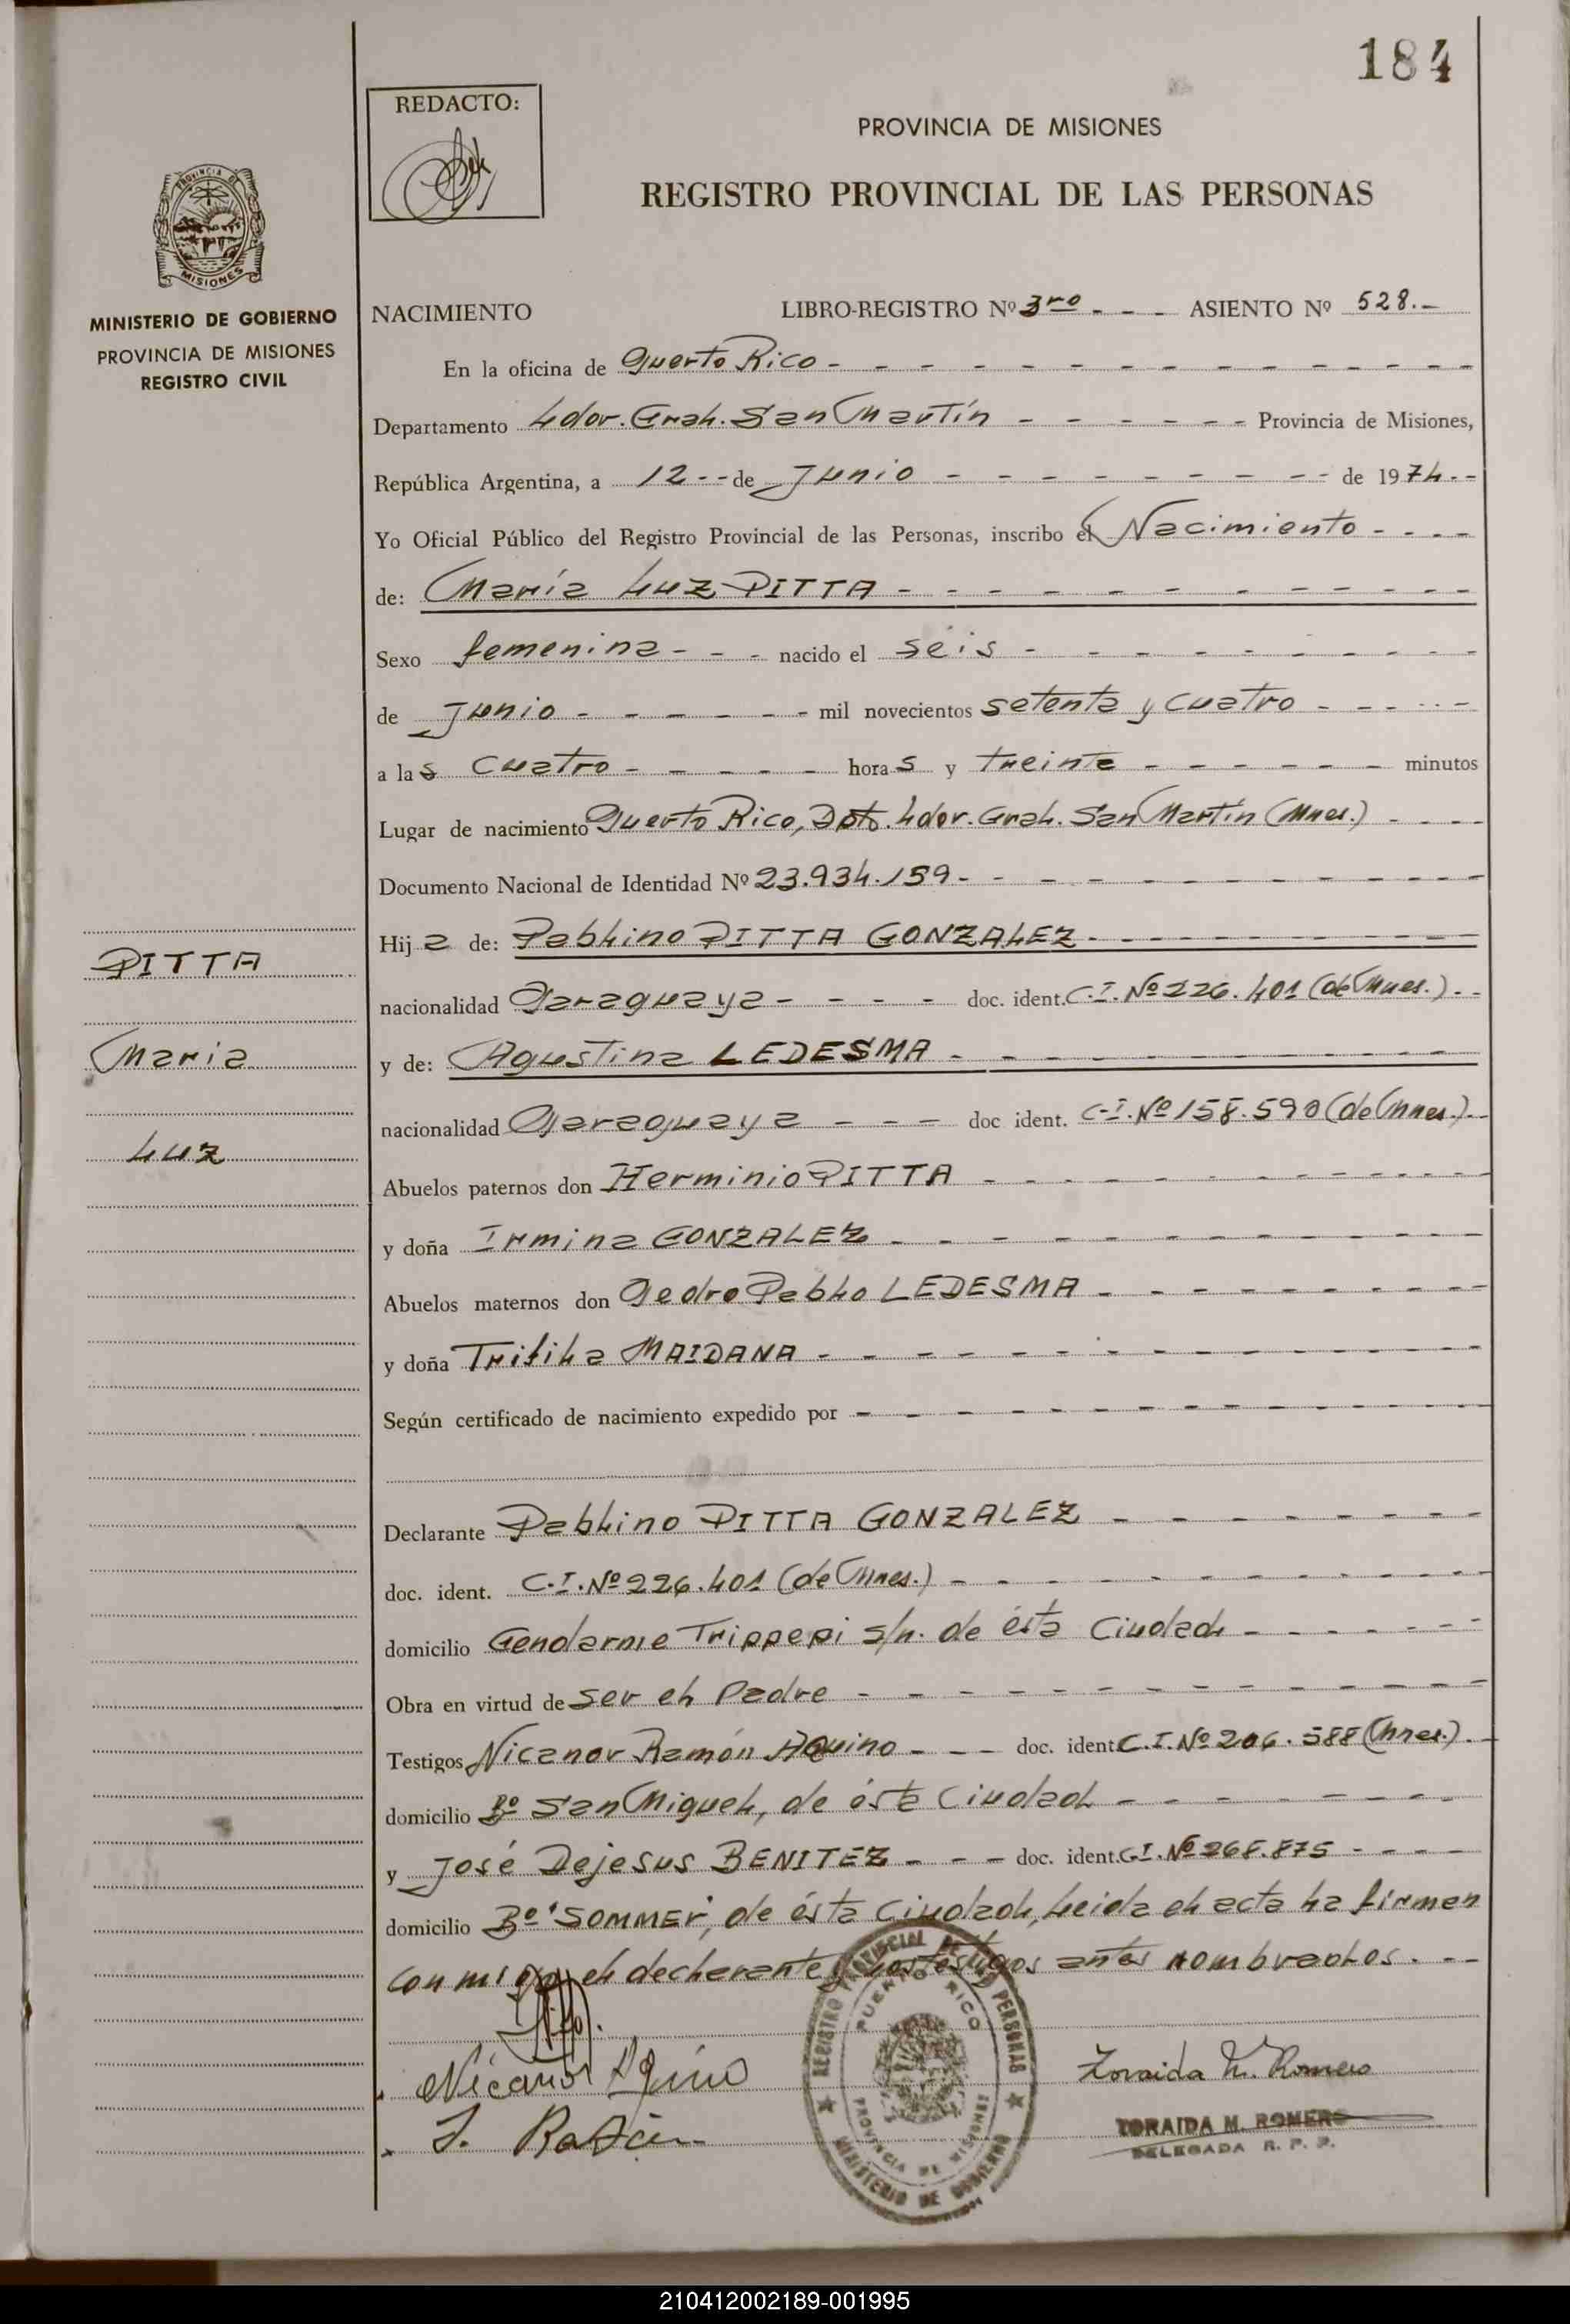 184
REDACTO:
PROVINCIA DE MISIONES
REGISTRO PROVINCIAL DE LAS PERSONAS
PROVINCIA DE
MISIONES
MINISTERIO DE GOBIERNO
PROVINCIA DE MISIONES
REGISTRO CIVIL
NACIMIENTO LIBRO-REGISTRO Nº 3ro - - - ASIENTO Nº 528.-
En la oficina de Puerto Rico - - - - - - - - - - - - - -
Departamento Ldor. Gral. San Martín - - - - - - Provincia de Misiones,
República Argentina, a 12 - - de Junio - - - - - - - - - de 1974.- -
Yo Oficial Público del Registro Provincial de las Personas, inscribo el Nacimiento - - - -
de: María Luz PITTA - - - - - - - - - - - -
Sexo femenina - - - nacido el séis - - - - - - - - - -
de Junio - - - - - - mil novecientos setenta y cuatro - - - - - -
a las cuatro - - - - - horas y treinta - - - - - - minutos
Lugar de nacimiento Puerto Rico, Dpto. Ldor. Gral. San Martín (Mnes.) - - - -
Documento Nacional de Identidad Nº 23.934.159 - - - - - - - - - - - -
Hija de: Pablino PITTA GONZALEZ - - - - - - - - -
nacionalidad Paraguaya - - - - doc. ident. C.I. Nº 226.401 (de Mnes.). - -
y de: Agustina LEDESMA - - - - - - - - - - - -
nacionalidad Paraguaya - - - doc ident. C.I. Nº 158.590 (de Mnes.). - -
Abuelos paternos don Herminio PITTA - - - - - - - - - - - -
y doña Irmina GONZALEZ - - - - - - - - - - - -
Abuelos maternos don Pedro Pablo LEDESMA - - - - - - - - -
y doña Trifila MAIDANA - - - - - - - - - - - - - -
Según certificado de nacimiento expedido por - - - - - - - - - - - - -
Declarante Pablino PITTA GONZALEZ - - - - - - - - -
doc. ident. C.I. Nº 226.401 (de Mnes.) - - - - - - - - - - - -
domicilio Gendarme Trippepi s/n. de ésta Ciudad - - - - - -
Obra en virtud de ser el Padre - - - - - - - - - - - - -
Testigos Nicanor Ramón AQuino - - - doc. ident. C.I. Nº 206.588 (Mnes.). -
domicilio Bº San Miguel, de ésta Ciudad - - - - - - - -
y José Dejesus BENITEZ - - - doc. ident. C.I. Nº 268.875 - - - -
domicilio Bº "SOMMER", de ésta Ciudad, leida el acta la firman
conmigo, el declarante y los testigos antes nombrados. - - -
PITTA
Maria
Luz
Nicanor Aquino
Zoraida M. Romero
ZORAIDA M. ROMERO
DELEGADA R. P. P.
REGISTRO PROVINCIAL DE LAS PERSONAS
PUERTO RICO
PROVINCIA DE MISIONES
MINISTERIO DE GOBIERNO
210412002189-001995